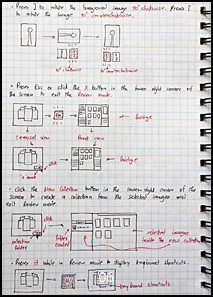 • Press ] to rotate the foreground image 90° clockwise. Press [
to rotate the image 90° counterclockwise.
90° clockwise
90° counterclockwise
• Press Esc or click the X button in the lower right corner of
the screen to exit the Review mode.
Carousel view
Front view
Bridge
click
Bridge
• Click the New Collection button in the lower-right corner of the
screen to create a collection from the selected images and
exit Review mode.
click
collection
folder
selected images
inside the new collection
• Press H while in Review mode to display keyboard shortcuts.
keyboard shortcuts